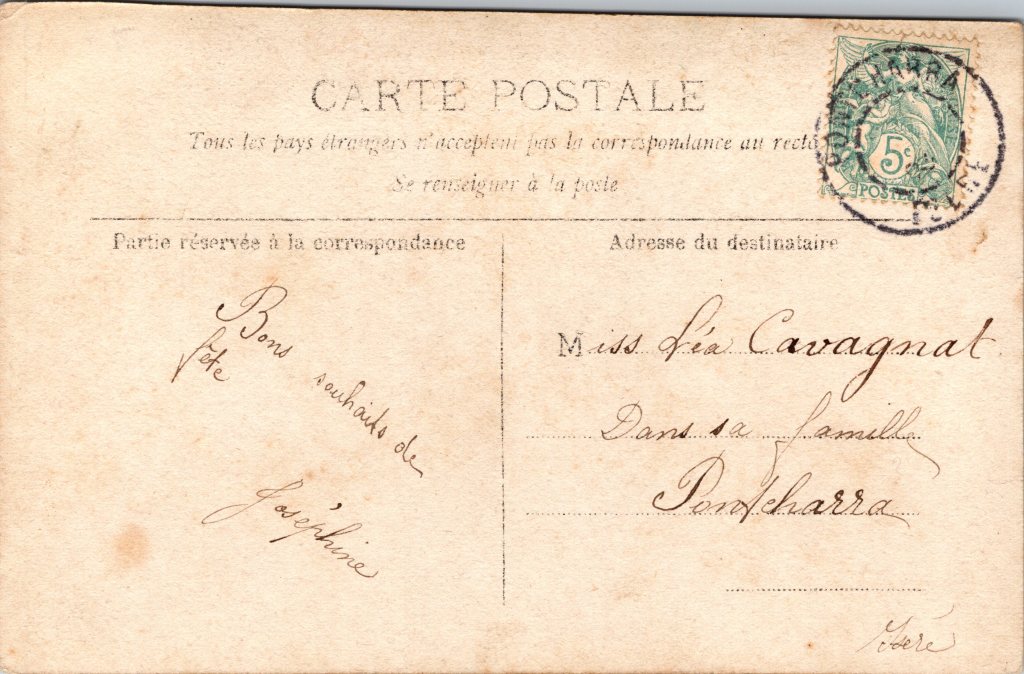 CARTE POSTALE
Tous les pays étrangers n'acceptent pas la correspondance au recto
Se renseigner à la poste
5c
POSTES
PONTCHARRA
Partie réservée à la correspondance
Adresse du destinataire
Bons souhaits de
fête
Joséphine
Miss Léa Cavagnat
Dans sa famille
Pontcharra
Isère